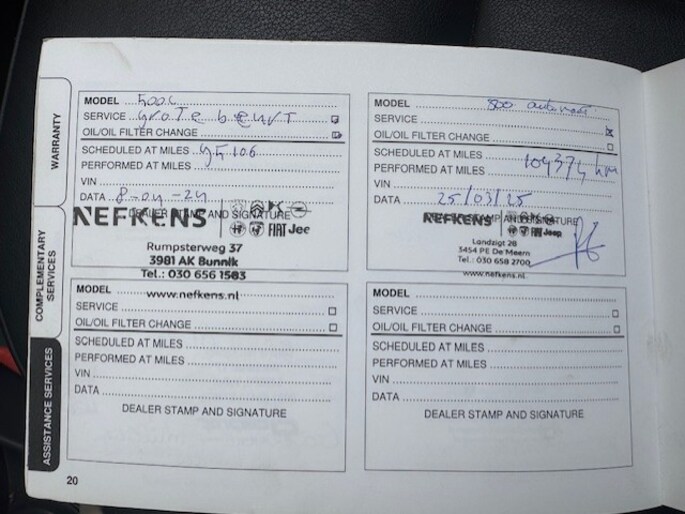 WARRANTY
COMPLEMENTARY
SERVICES
ASSISTANCE SERVICES
MODEL 500C
SERVICE GroTe beurT
OIL/OIL FILTER CHANGE
SCHEDULED AT MILES 95106
PERFORMED AT MILES
VIN
DATA 8-04-24
DEALER STAMP AND SIGNATURE
NEFKENS
FIAT Jeep
Rumpsterweg 37
3981 AK Bunnik
Tel.: 030 656 1583
www.nefkens.nl
MODEL 500 automaat
SERVICE
OIL/OIL FILTER CHANGE
SCHEDULED AT MILES
PERFORMED AT MILES 104374 km
VIN
DATA 25/03/25
DEALER STAMP AND SIGNATURE
NEFKENS
FIAT Jeep
Landzigt 28
3454 PE De Meern
Tel.: 030 658 2700
www.nefkens.nl
MODEL
SERVICE
OIL/OIL FILTER CHANGE
SCHEDULED AT MILES
PERFORMED AT MILES
VIN
DATA
DEALER STAMP AND SIGNATURE
MODEL
SERVICE
OIL/OIL FILTER CHANGE
SCHEDULED AT MILES
PERFORMED AT MILES
VIN
DATA
DEALER STAMP AND SIGNATURE
20